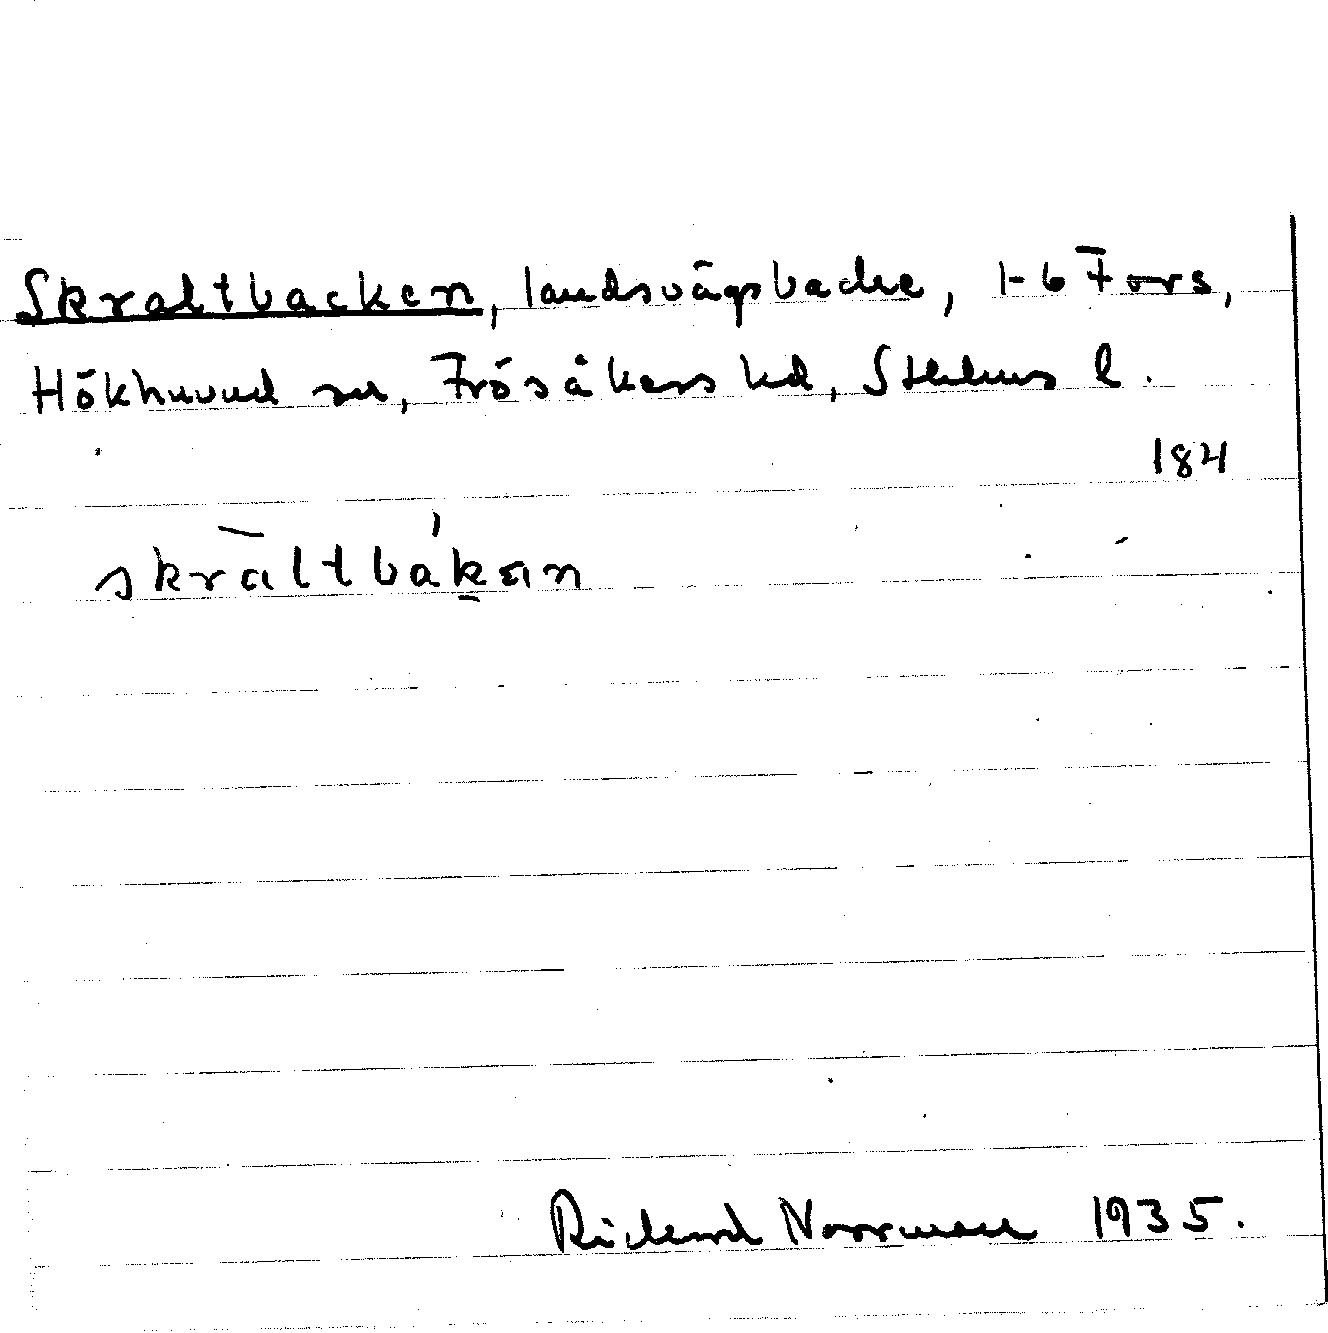 Skraltbacken, landsvägsbacke, 1-6 Fors,
Hökhuvud sn, Frösåkers hd, Sthlms l.
184
skraltbakan
Richard Norrman 1935.